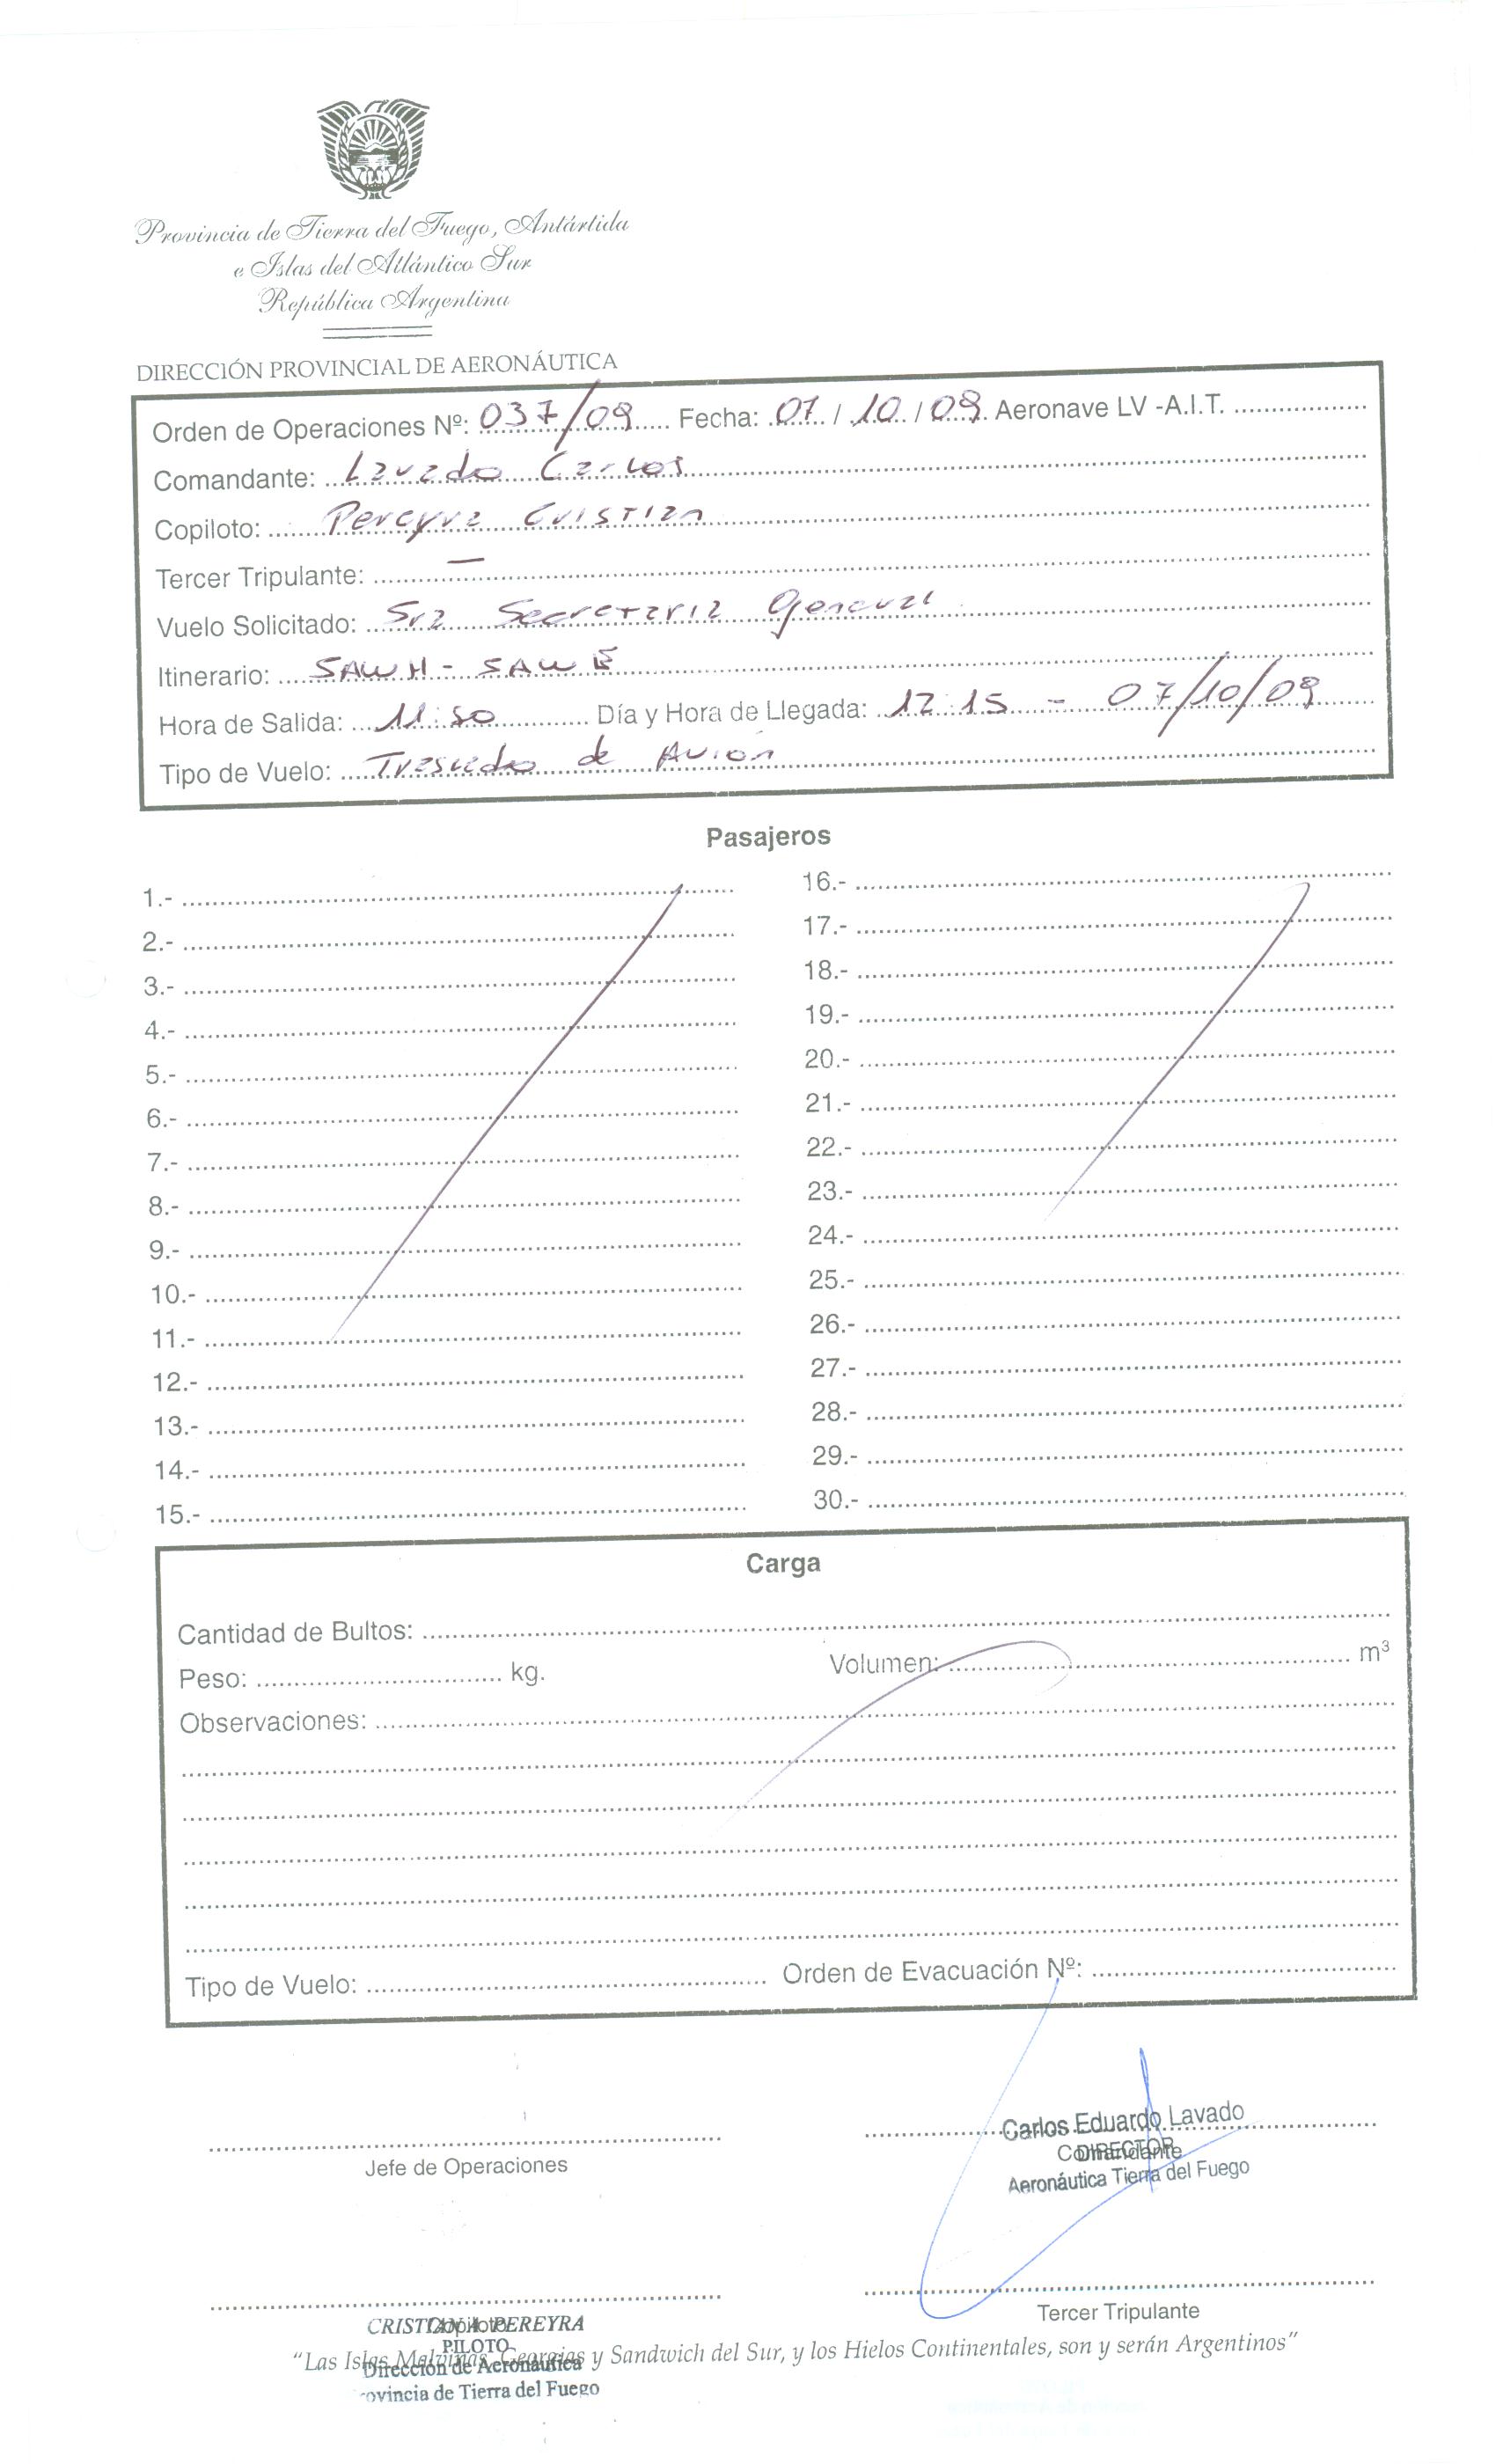 Provincia de Tierra del Fuego, Antártida
e Islas del Atlántico Sur
República Argentina
DIRECCIÓN PROVINCIAL DE AERONÁUTICA
Orden de Operaciones Nº: 037/09 Fecha: 07 / 10 / 09 Aeronave LV -A.I.T.
Comandante: Lavado Carlos
Copiloto: Pereyra Cristian
Tercer Tripulante: —
Vuelo Solicitado: Sra Secretaria General
Itinerario: SAWH - SAWE
Hora de Salida: 11:50 Día y Hora de Llegada: 12:15 - 07/10/09
Tipo de Vuelo: Traslado de Avion
Pasajeros
1.- 16.-
2.- 17.-
3.- 18.-
4.- 19.-
5.- 20.-
6.- 21.-
7.- 22.-
8.- 23.-
9.- 24.-
10.- 25.-
11.- 26.-
12.- 27.-
13.- 28.-
14.- 29.-
15.- 30.-
Carga
Cantidad de Bultos:
Peso: kg. Volumen: m³
Observaciones:
Tipo de Vuelo: Orden de Evacuación Nº:
Carlos Eduardo Lavado
Comandante
DIRECTOR
Aeronáutica Tierra del Fuego
Jefe de Operaciones
Tercer Tripulante
Copiloto
CRISTIAN A. PEREYRA
PILOTO
"Las Islas Malvinas, Georgias y Sandwich del Sur, y los Hielos Continentales, son y serán Argentinos"
Dirección de Aeronáutica
rovincia de Tierra del Fuego